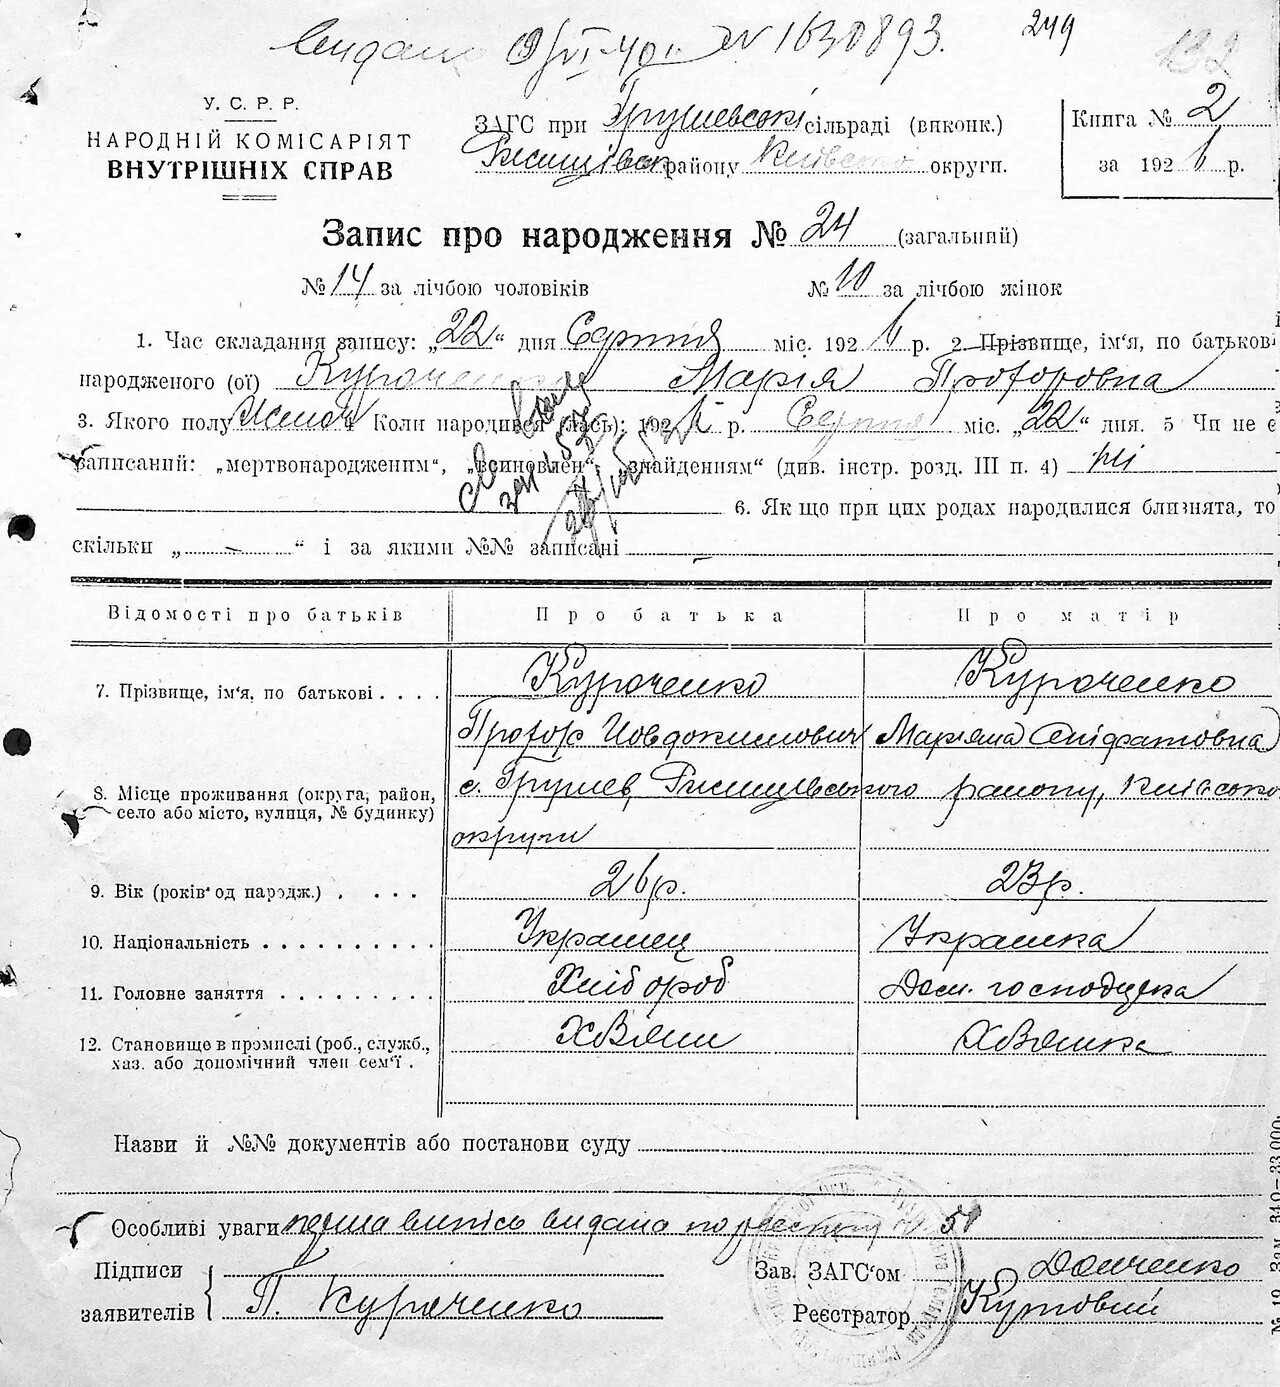 Видано 9/VI-40 г. № 1630893.
249
132
У. С. Р. Р.
НАРОДНІЙ КОМІСАРІЯТ
ВНУТРІШНІХ СПРАВ
ЗАГС при Грушевській сільраді (виконк.)
Ржищівськ району Київсько округи.
Книга № 2
за 1926 р.
Запис про народження № 24 (загальний)
№ 14 за лічбою чоловіків № 10 за лічбою жінок
1. Час складання запису: „22“ дня Серпня міс. 1926 р. 2 Прізвище, ім'я, по батькові
народженого (ої) Куроченко Марія Прохоровна
3. Якого полу Жіноч 4 Коли народився (лась): 1926 р. Серпня міс. „22“ дня. 5 Чи не є
записаний: „мертвонародженим“, „всиновлен“, „знайденям“ (див. інстр. розд. III п. 4) ні
6. Як що при цих родах народилися близнята, то
скільки „ - “ і за якими №№ записані -
Відомості про батьків Про батька Про матір
7. Прізвище, ім'я, по батькові . . . . Куроченко Куроченко
Прохор Йовдокимович Мар'яна Єпіфановна
8. Місце проживання (округа, район, с. Грушев, Ржищівського району, Київсько
село або місто, вулиця, № будинку)
округи
9. Вік (років од народж.) . . . . 26 р. 23 р.
10. Національність . . . . . . . . . . Украінец Украінка
11. Головне заняття . . . . . . . . . Хлібороб Дом. господарка
12. Становище в промислі (роб., служб., Хвяин Хвяинка
хаз. або допомічний член сем'ї .
Назви й №№ документів або постанови суду
Особливі уваги перша випись видана по реестру № 51
Підписи
заявителів П. Куроченко
Зав. ЗАГС'ом Донченко
Реєстратор Кутовий
№ 19 Зам. 340—33.000.